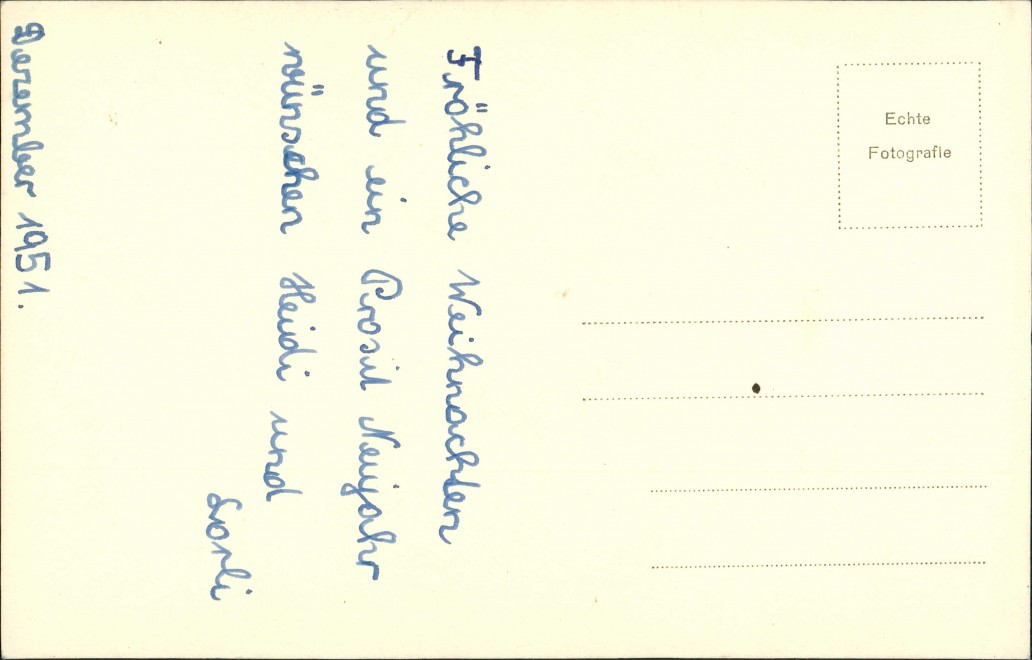 Fröhliche Weihnachten
und ein Prosit Neujahr
wünschen Heidi und
Lorli
Dezember 1951.
Echte
Fotografie